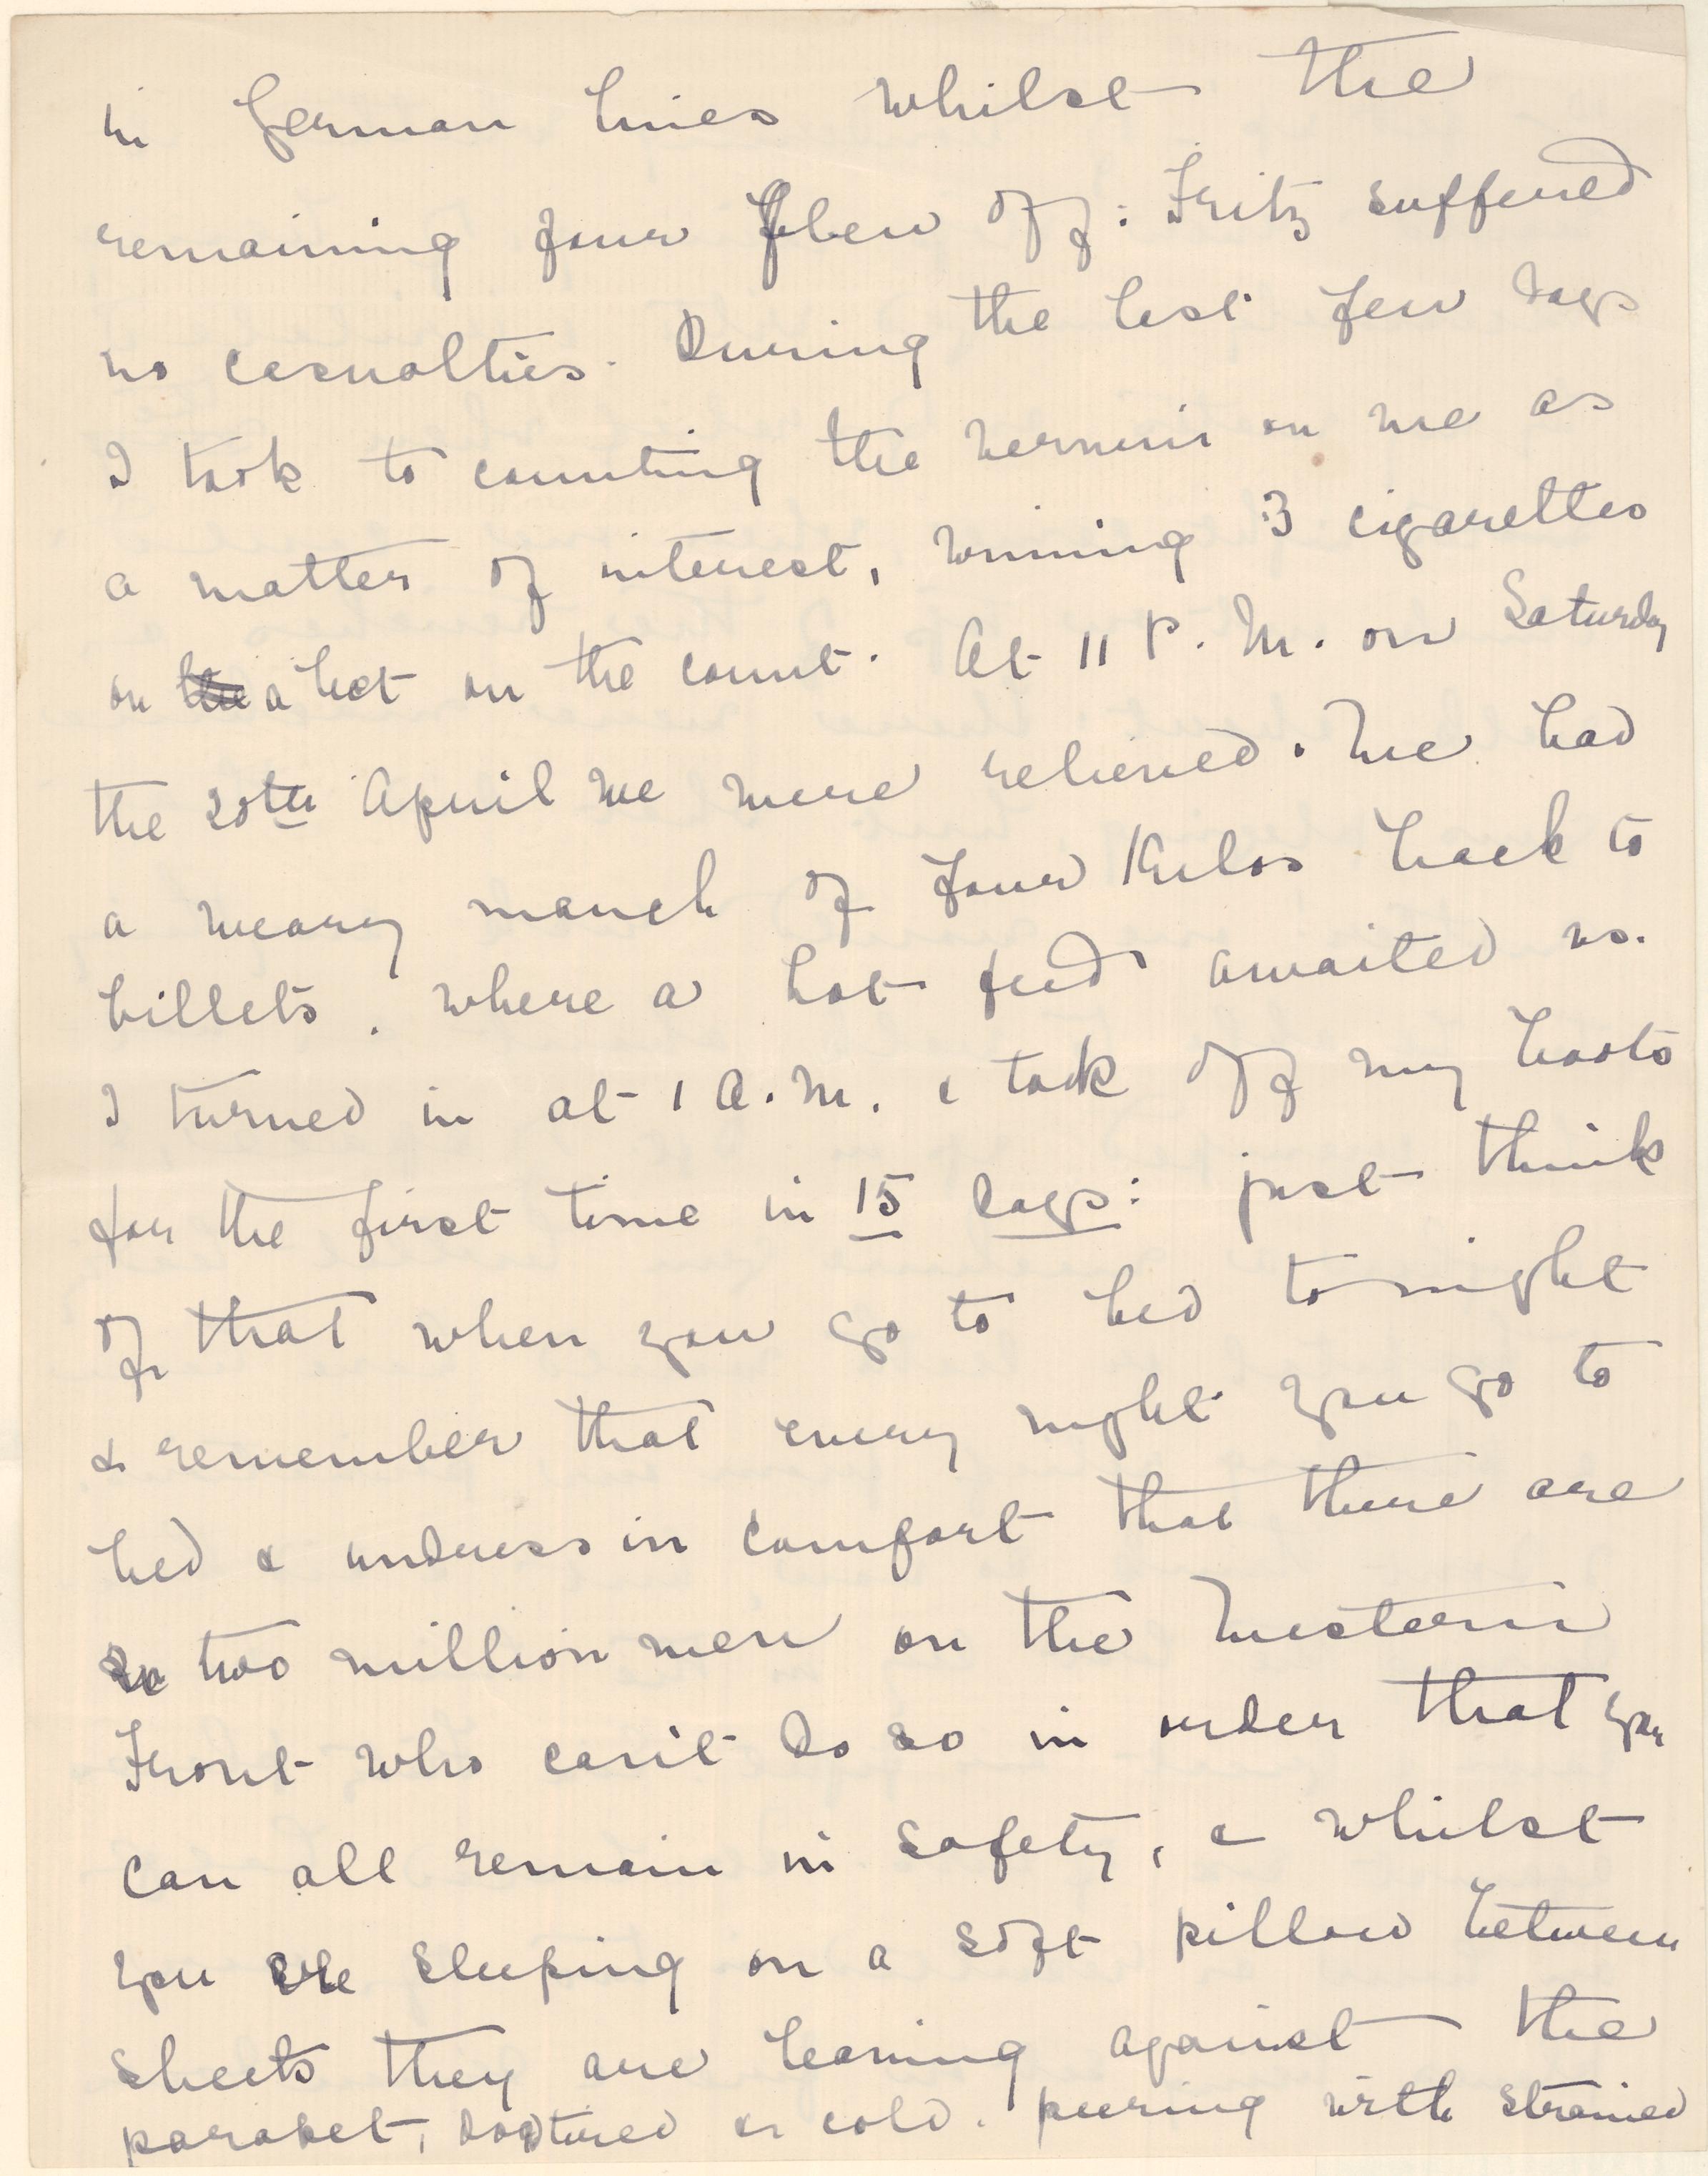 in German lines whilst the
remaining four flew off: Fritz suffered
no casualties. During the last few days
I took to counting the vermin on me as
a matter of interest, winning 3 cigarettes
on the a bet on the count. At 11 P.M. on Saturday
the 20th April we were relieved. We had
a weary march of four Kilos back to
billets, where a hot feed awaited us.
I turned in at 1 A.M. & took off my boots
for the first time in 15 days: just think
of that when you go to bed to-night
& remember that every night you go to
bed & undress in comfort that there are
two million men on the Western
Front who can't do so in order that you
can all remain in safety, & whilst
you are sleeping on a soft pillow between
sheets they are leaning against the
parapet, dogtired & cold, peering with strained